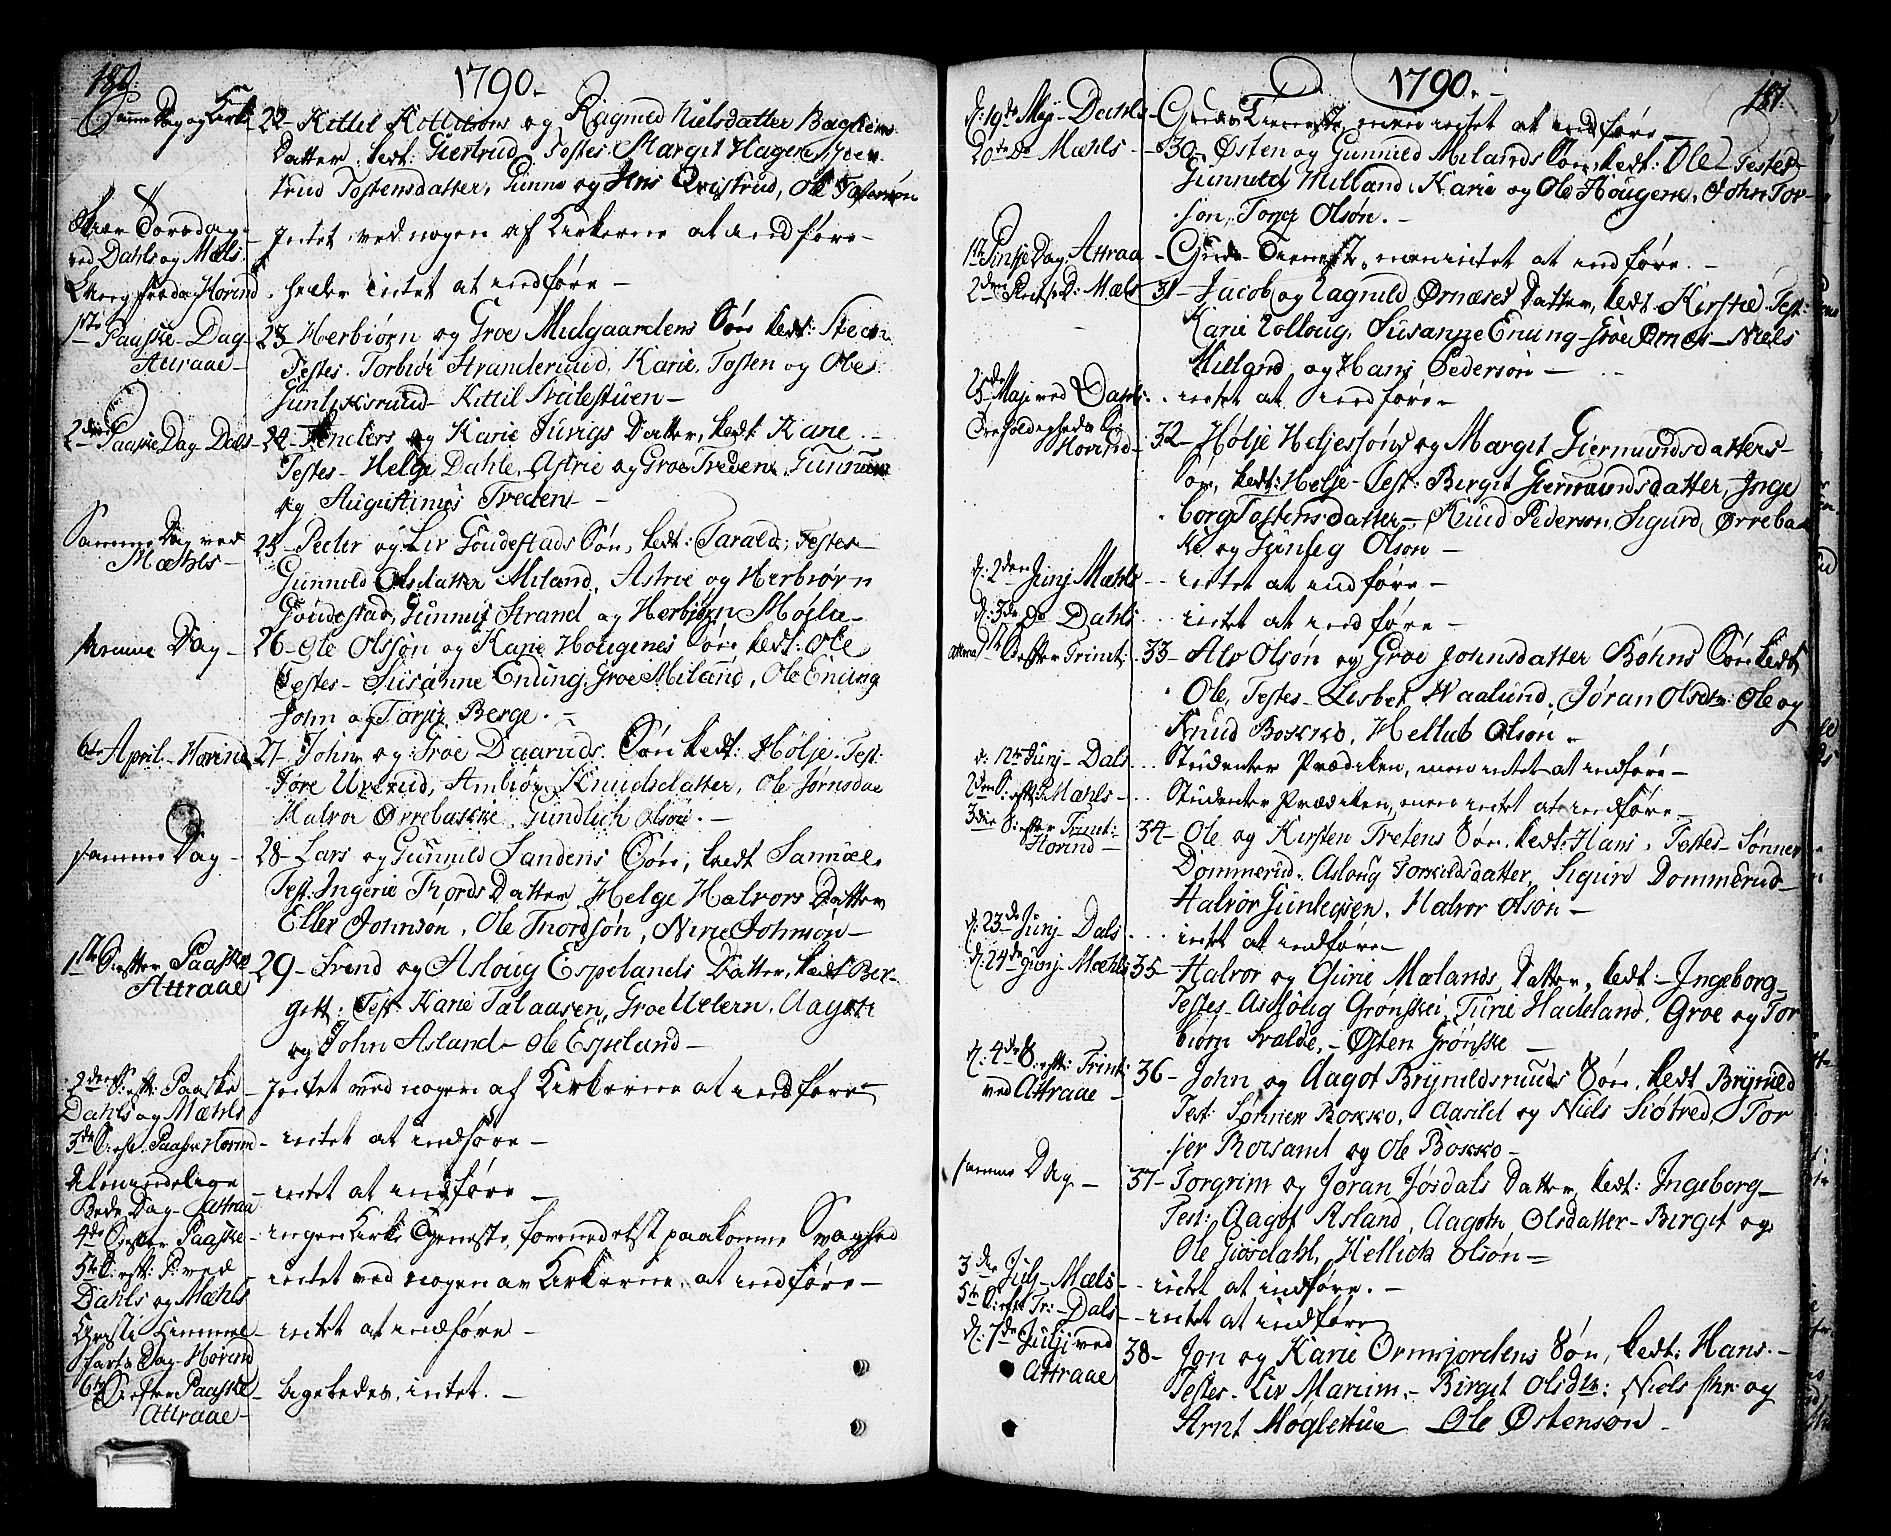 180.
1790.
Samme Dag og Kirke 22- Kittil Kittilsøns og Ragned Nielsdatter Bagliens
Datter, kedt: Giertrud, Testes Margit Hagene, Gier-
trud Tostensdatter, Gunne og Jens Qvistrud, Ole Tostensøn
Skiær Torsdag ved Dahls og Mæls - Intet ved nogen af Kirkerne at indføre -
Lang fredag Hovind - heller intet at indføre -
1ste Paaske-Dag Attraae - 23- Herbiørn og Groe Midgaardens Søn kedt: Steen
Testes. Torbiør Stranderuud, Karie, Tosten og Ole
Gunleiksruud Kittil Straalestuen -
2den Paaske Dag Dals - 24- Anders og Karie Juvigs Datter, kedt Karie -
Testes- Helge Dahle, Astrie og Groe Træden, Gunnuu
og Augustinus Træden -
Samme Dag ved Mæhls - 25- Peder og Liv Goudestads Søn, kedt: Tarald, Testes
Gunnild Olsdatter Miland, Astrie og Herbiørn
Goudestad, Gunnuf Strand og Herbiørn Møgla -
samme Dag - 26- Ole Olssøn og Karie Hougenes Søn kedt: Ole
Testes- Susanne Enung, Groe Miland, Ole Enung
John og Torgir Berge. -
6te April - Hovind 27- John og Groe Daaruds Søn kedt: Hølje- Test:
Tore Uverud, Ambiør Knudsdatter, Ole Jørnsdae
Halvor Ørrebakke, Gundlich Olsøn. -
samme Dag - 28- Lars og Gunnild Sandens Søn, kedt Samuel
Test: Ingerie Thords Datter, Helge Halvors Datter
Ellef Johnsøn, Ole Thordsøn, Nirie Johnsøn -
1ste S: efter Paaske Attraae 29- Svend og Asloug Espelands Datter, kedt Ber-
gett: Test Karie Talaasen, Groe Uelern, Aagoth
og John Asland - Ole Espeland -
2den S: eft: Paaske Dahls og Mæhls - Intet ved nogen af Kirkerne at indføre -
3de S: eft: Paaske Hovind - intet at indføre -
Almindelige Bede-Dag - Attraa - intet at indføre -
4de S: efter Paaske - ingen Kirke Tjeneste, formedelst paakomne Svaghed
5te S: eft: P: ved Dahls og Mæhls - intet ved nogen av Kirkerne, at indføre -
Christi Himmelfarts Dag - Hovind - intet at indføre -
6te S: efter Paaske Attraae - ligeledes, intet. -
181.
1790. -
d: 19de Maj - Dahls - Guds Tieneste, men intet at indføre -
20de Do Mæhls - 30- Østen og Gunnild Milands Søn kedt: Ole - Testes
Gunnild Milland, Karie og Ole Hougene, John Tor-
søn, Torgj Olsøn. -
1ste Pinse Dag Attraa - Guds Tieneste, men intet at indføre. -
2den Pinse D: Mæls 31- Jacob og Ragnild Ørnæses Datter, kedt- Kirstie Test:
Karie Rolloug, Susanne Enung - Groe Ørnæs - Niels
Milland, og Hans Pedersøn -
25de Maj ved Dahls: . . intet at indføre -
Treefoldigheds S: Hovind - 32- Hølje Heljessøns og Margit Giermundsdatters
Søn, kedt: Helje- Test: Birgit Giermundsdatter, Inge
borg Tostensdatter - Knud Pedersøn, Sigurd Ørreba
ke og Gunleg Olsøn -
d: 2den Junj Mæhls - . intet at indføre -
d: 3de Do - Dahls . . intet at indføre -
Attraa 1ste S: efter Trinit. 33- Alv Olsøn og Groe Johnsdatter Bøhns Søn kedt
Ole, Testes- Lisbet Waalund, Jøran Olsdtr: Ole og
Knud Bokko, Helluk Olsøn -
d: 12te Junj - Dals . . . Studenter Prædiken, men intet at indføre -
2den S: eft: T: Mæhls - . . . Studenter Prædiken, men intet at indføre -
3die S: efter Trinit: Hovind - 34- Ole og Kirsten Tretens Søn, kedt: Hans, Testes- Sønnev
Dommerud, Asloug Torkildsdatter, Sigurd Dommerud -
Halvor Gunlegsen, Halvor Olsøn -
d: 23de Junj Dals . . . intet at indføre -
d: 24de Junj - Mæhls 35- Halvor og Gurie Mælands Datter, kedt - Ingeborg -
Testes- Asdløug Grønskei, Turie Hadeland, Groe og Tor
biørn Svalde, - Østen Grønske -
d: 4de S: eft: Trinit: ved Attraae - 36- John og Aagot Brynildsruuds Søn, kedt Brynild
Test: Sønnev Bokko, Aaslet og Niels Siøtred, Tor
sjer Roisamt og Ole Bokko -
samme Dag - 37- Torgrim og Jøran Jøsdals Datter, kedt: Ingeborg -
Test: Aagot Asland, Aagoth Olsdatter - Birgit og
Ole Giøsdahl, Hellick Olsøn -
3die Julj - Mæls - . . intet at indføre. -
5te S: efter Tr: - Dals - - intet at indføre
d: 7de Julj ved Attraae 38- Jon og Karie Ormsjordens Søn, kedt: Hans. -
Testes- Liv Marium, - Birgit Olsdtr: Niels Skr: og
Arnt Møglestue Ole Østensøn -